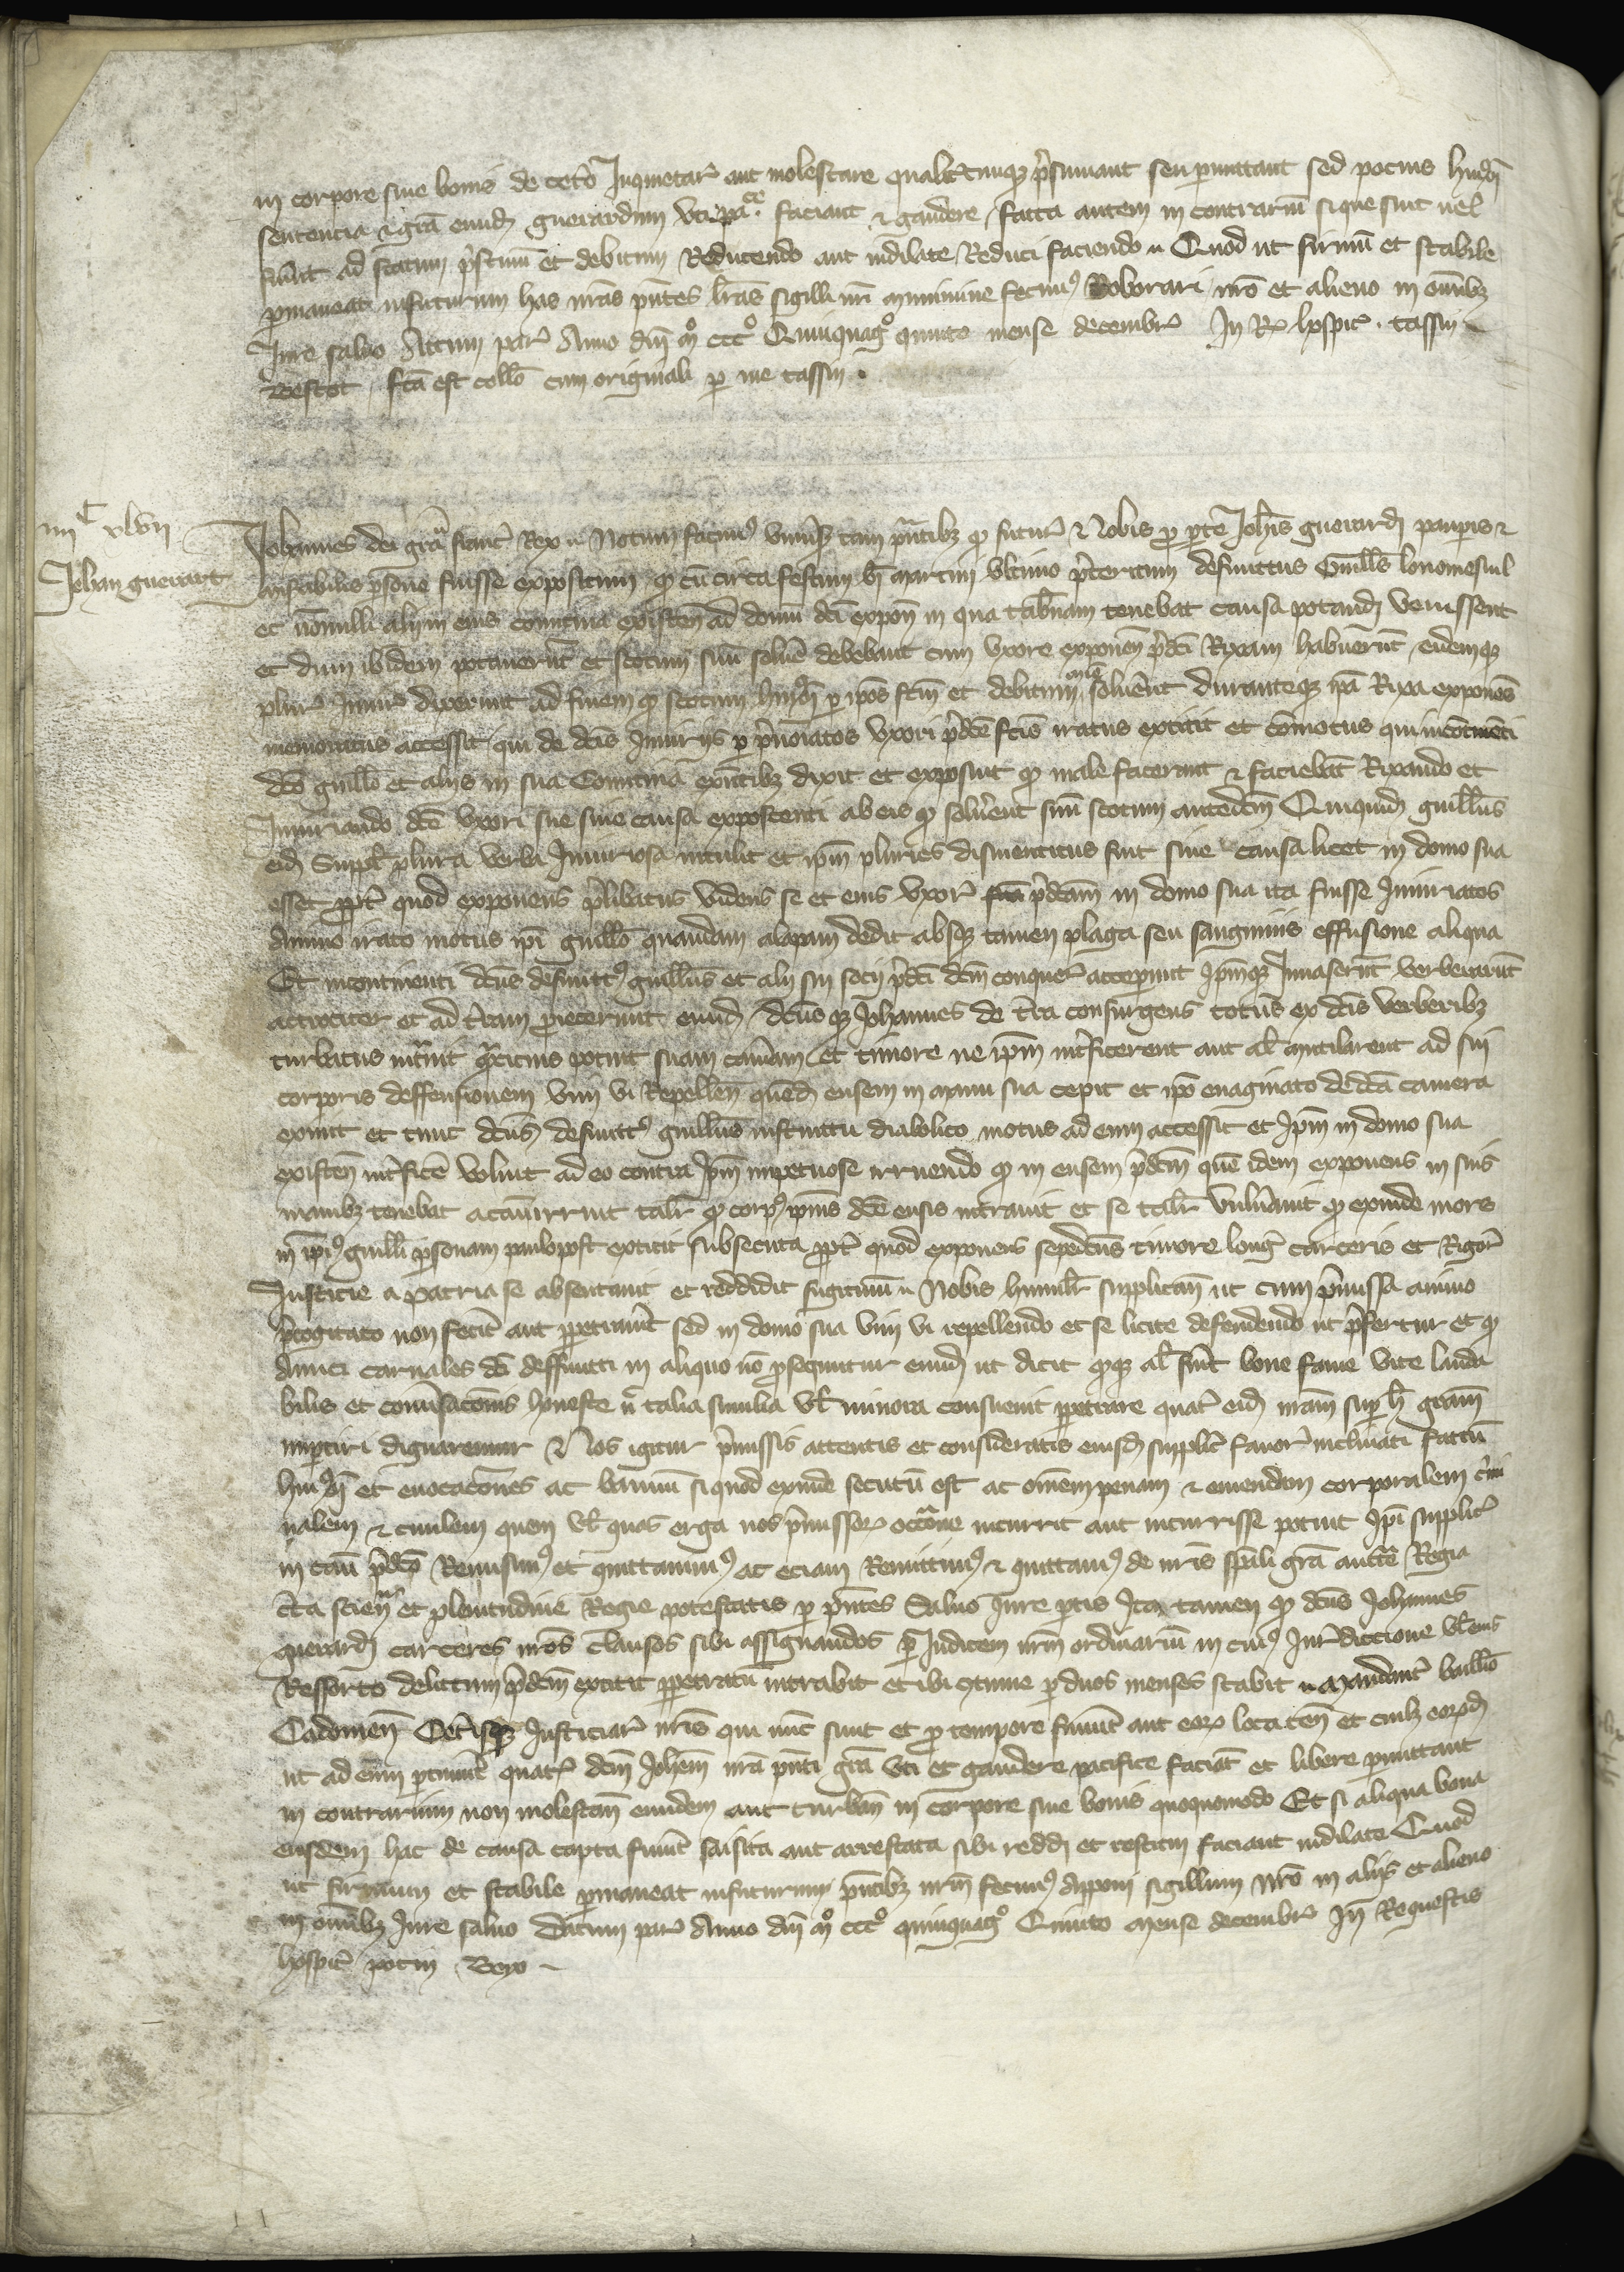 in corpore sive bonis de cetero Inquietare aut molestare qualitercumque presumant seu permittant sed pocius huiusmodi
sentencia et gracia eundem guerardum uti pace faciant et gaudere, facta autem in contrarium si que sint vel
fuerint ad statum pristinum et debitum Reducendo aut indilate Reduci faciendo Quod ut firmum et stabile
permaneat infuturum has nostras presentes litteras sigilli nostri munimine fecimus Roborari nostro et alieno in omnibus
Jure salvo Actum parisius Anno domini mº cccº Quinquagº quinto mense decembris In Req hospicii . tassin
facta est collacio cum originali per me tassin .
iiiiC xlvii
Jehan guerart
Johannes dei gracia francorum Rex Notum facimus universis tam presentibus quam futuris Nobis pro parte Johannis guerardi pauperis et
miserabilis persone fuisse expositum quod cum circa festum beati martini ultimo preteritum defunctus Guillelmus
et nonnulli alii in eius comitiva existentes ad domum dicti exponentis in qua tabernam tenebat causa potandi venissent
et dum ibidem potaverunt et scotum suum solvere debebant cum uxore exponentis predicti Rixam habuerunt, eidemque
plures Injurias dixerunt ad finem quod scotum huiusmodi per ipsos factum et debitum non solverent Duranteque ipsa Rixa exponens
memoratus accessit qui de dictis Injuriis per prenominatos uxori predicte factis iratus extitit et commotus qui incontinenti
dicto guillelmo et aliis in sua Comitiva existentibus dixit et exposuit quod male fecerant et faciebant Rixando et
Injuriando dicte uxori sue sine causa exposcenti ab eis quod solverent suum scotum antedictum Quiquidem guillelmus
eidem Supplicanti plura verba Injuriosa intulit et ipsum pluries dismentitus fuit sine causa licet in domo sua
esset propter quod exponens prelibatus videns se et eius uxorem predictam in domo sua ita fuisse Injuriatos
Animo irato motus ipsi guillelmo quandam alapam dedit absque tamen plaga seu sanguinis effusione aliqua
Et incontinenti dictus defunctus guillelmus et alii sui socii predicti dictum conquerentem acceperunt Ipsumque Invaserunt verberarunt
atrociter et ad terram proiecerunt eundem, dictusque Johannes de terra consurgens totus ex dictis verberibus
turbatus intravit quam cicius potuit suam cameram et timore ne ipsum interficerent aut alias mutilarent ad sui
corporis deffensionem vim vi Repellendo quendam ensem in manu sua cepit et ipso evaginato de dicta camera
exivit et tunc dictus defunctus guillelmus instinctu diabolico motus ad eum accessit et Ipsum in domo sua
existentem interficere voluit adeo contra Ipsum impetuose irruendo quod in ensem predictum quem idem exponens in suis
manibus tenebat taliter quod corpus ipsius dicte ensis intravit et se taliter vulneravit quod exinde mors
in ipsius guillelmi personam paulopost extitit subsecuta propter quod exponens sepedictus timore longi carceris et Rigoris
Justicie a patria se absentavit et reddidit fugitivum Nobis humiliter supplicans ut cum premissa animo
precogitato non fecerit aut perpetraverit sed in domo sua vim vi repellendo et se licite defendendo ut prefertur et quod
Amici carnales dicti deffuncti in aliquo non prosequuntur eundem ut dicit quodque alias fuerit bone fame vite lauda
bilis et conversacionis honeste nec talia similia vel minora consuevit perpetrare quatinus eidem nostram super hoc graciam
impertiri dignaremur Nos igitur premissis attentis et consideratis eiusdem supplicantis favore inclinati factum
huiusmodi et evocaciones ac bannum si quod exinde secutum est ac omnem penam et emendam corporalem crimi
nalem et civilem quem vel quas erga nos premissorum occasione incurrit aut incurrisse potuit Ipsi supplicanti
in casu predicto Remisimus et quittavimus ac eciam Remittimus et quittamus de nostris speciali gracia auctoritate Regia
certa sciencia et plenitudine Regie potestatis per presentes Salvo Jure partis Ita tamen quod dictus Johannes
guerardi carceres nostros clausos sibi assignandos per Judicem nostrum ordinarium in cuius Jurisdiccione vel eius
Ressorto delictum predictum extitit perpetratum intrabit et ibi continue per duos menses stabit Mandantes baillivo
Cadomensi Ceterisque Justiciariis nostris qui nunc sunt et pro tempore fuerint aut eorum loca tenentibus et cuilibet eorumdem
ut ad eum pertinuerit quatinus dictum Johannem nostra presenti gracia uti et gaudere pacifice faciant et libere permittant
in contrarium non molestantes eundem aut turbantes in corpore sive bonis quoquomodo Et si aliqua bona
eiusdem hac de causa capta fuerint saisita aut arrestata sibi reddi et restitui faciant indilate Quod
ut firmum et stabile permaneat infuturum presentibus nostrum fecimus Apponi sigillum Nostro in aliis et alieno
in omnibus Jure salvo Datum parisius Anno domini mº cccº quinquagº Quinto mense decembris In Requestis
hospicii potin Beyo